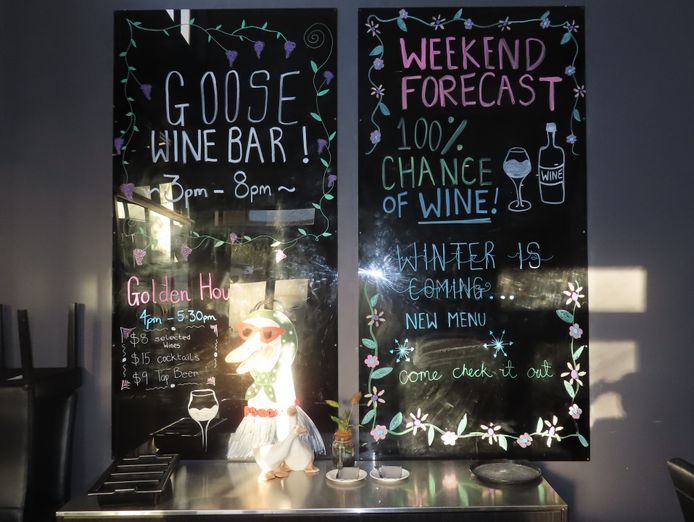 GOOSE
WINE BAR!
~3pm - 8pm~
Golden Hou
4pm - 5:30pm
$8 selected
Wines
$15 cocktails
$9 Tap Beer
WEEKEND
FORECAST
100%
CHANCE
OF WINE!
WINE
WINTER IS
COMING...
NEW MENU
come check it out